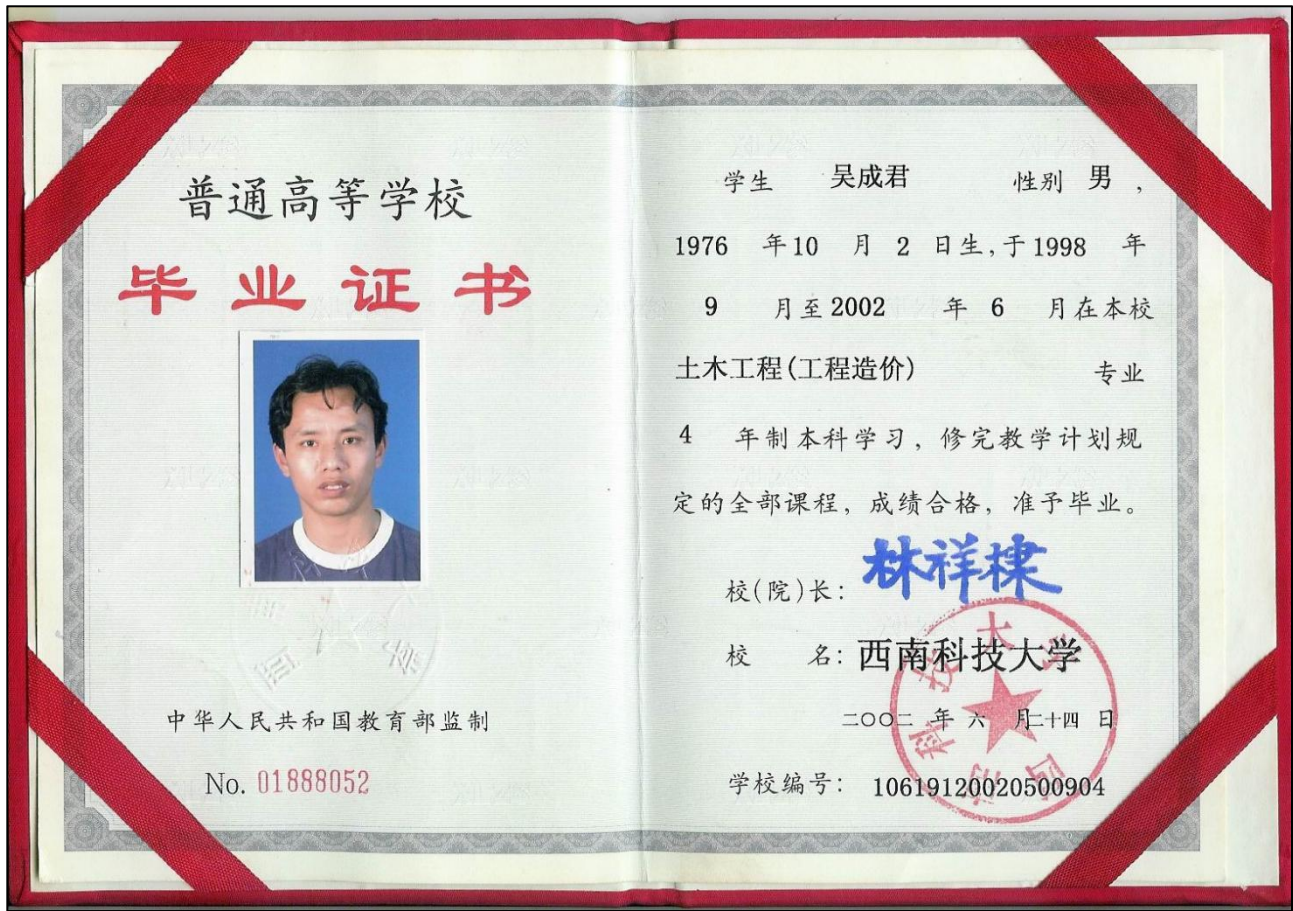 普通高等学校
毕业证书
中华人民共和国教育部监制
No. 01888052
学生 吴成君 性别 男 ,
1976 年 10 月 2 日生,于 1998 年
9 月至 2002 年 6 月在本校
土木工程(工程造价) 专业
4 年制本科学习,修完教学计划规
定的全部课程,成绩合格,准予毕业。
校(院)长: 林祥棣
校 名: 西南科技大学
二〇〇二 年 六 月二十四 日
学校编号: 10619120020500904
西南科技大学